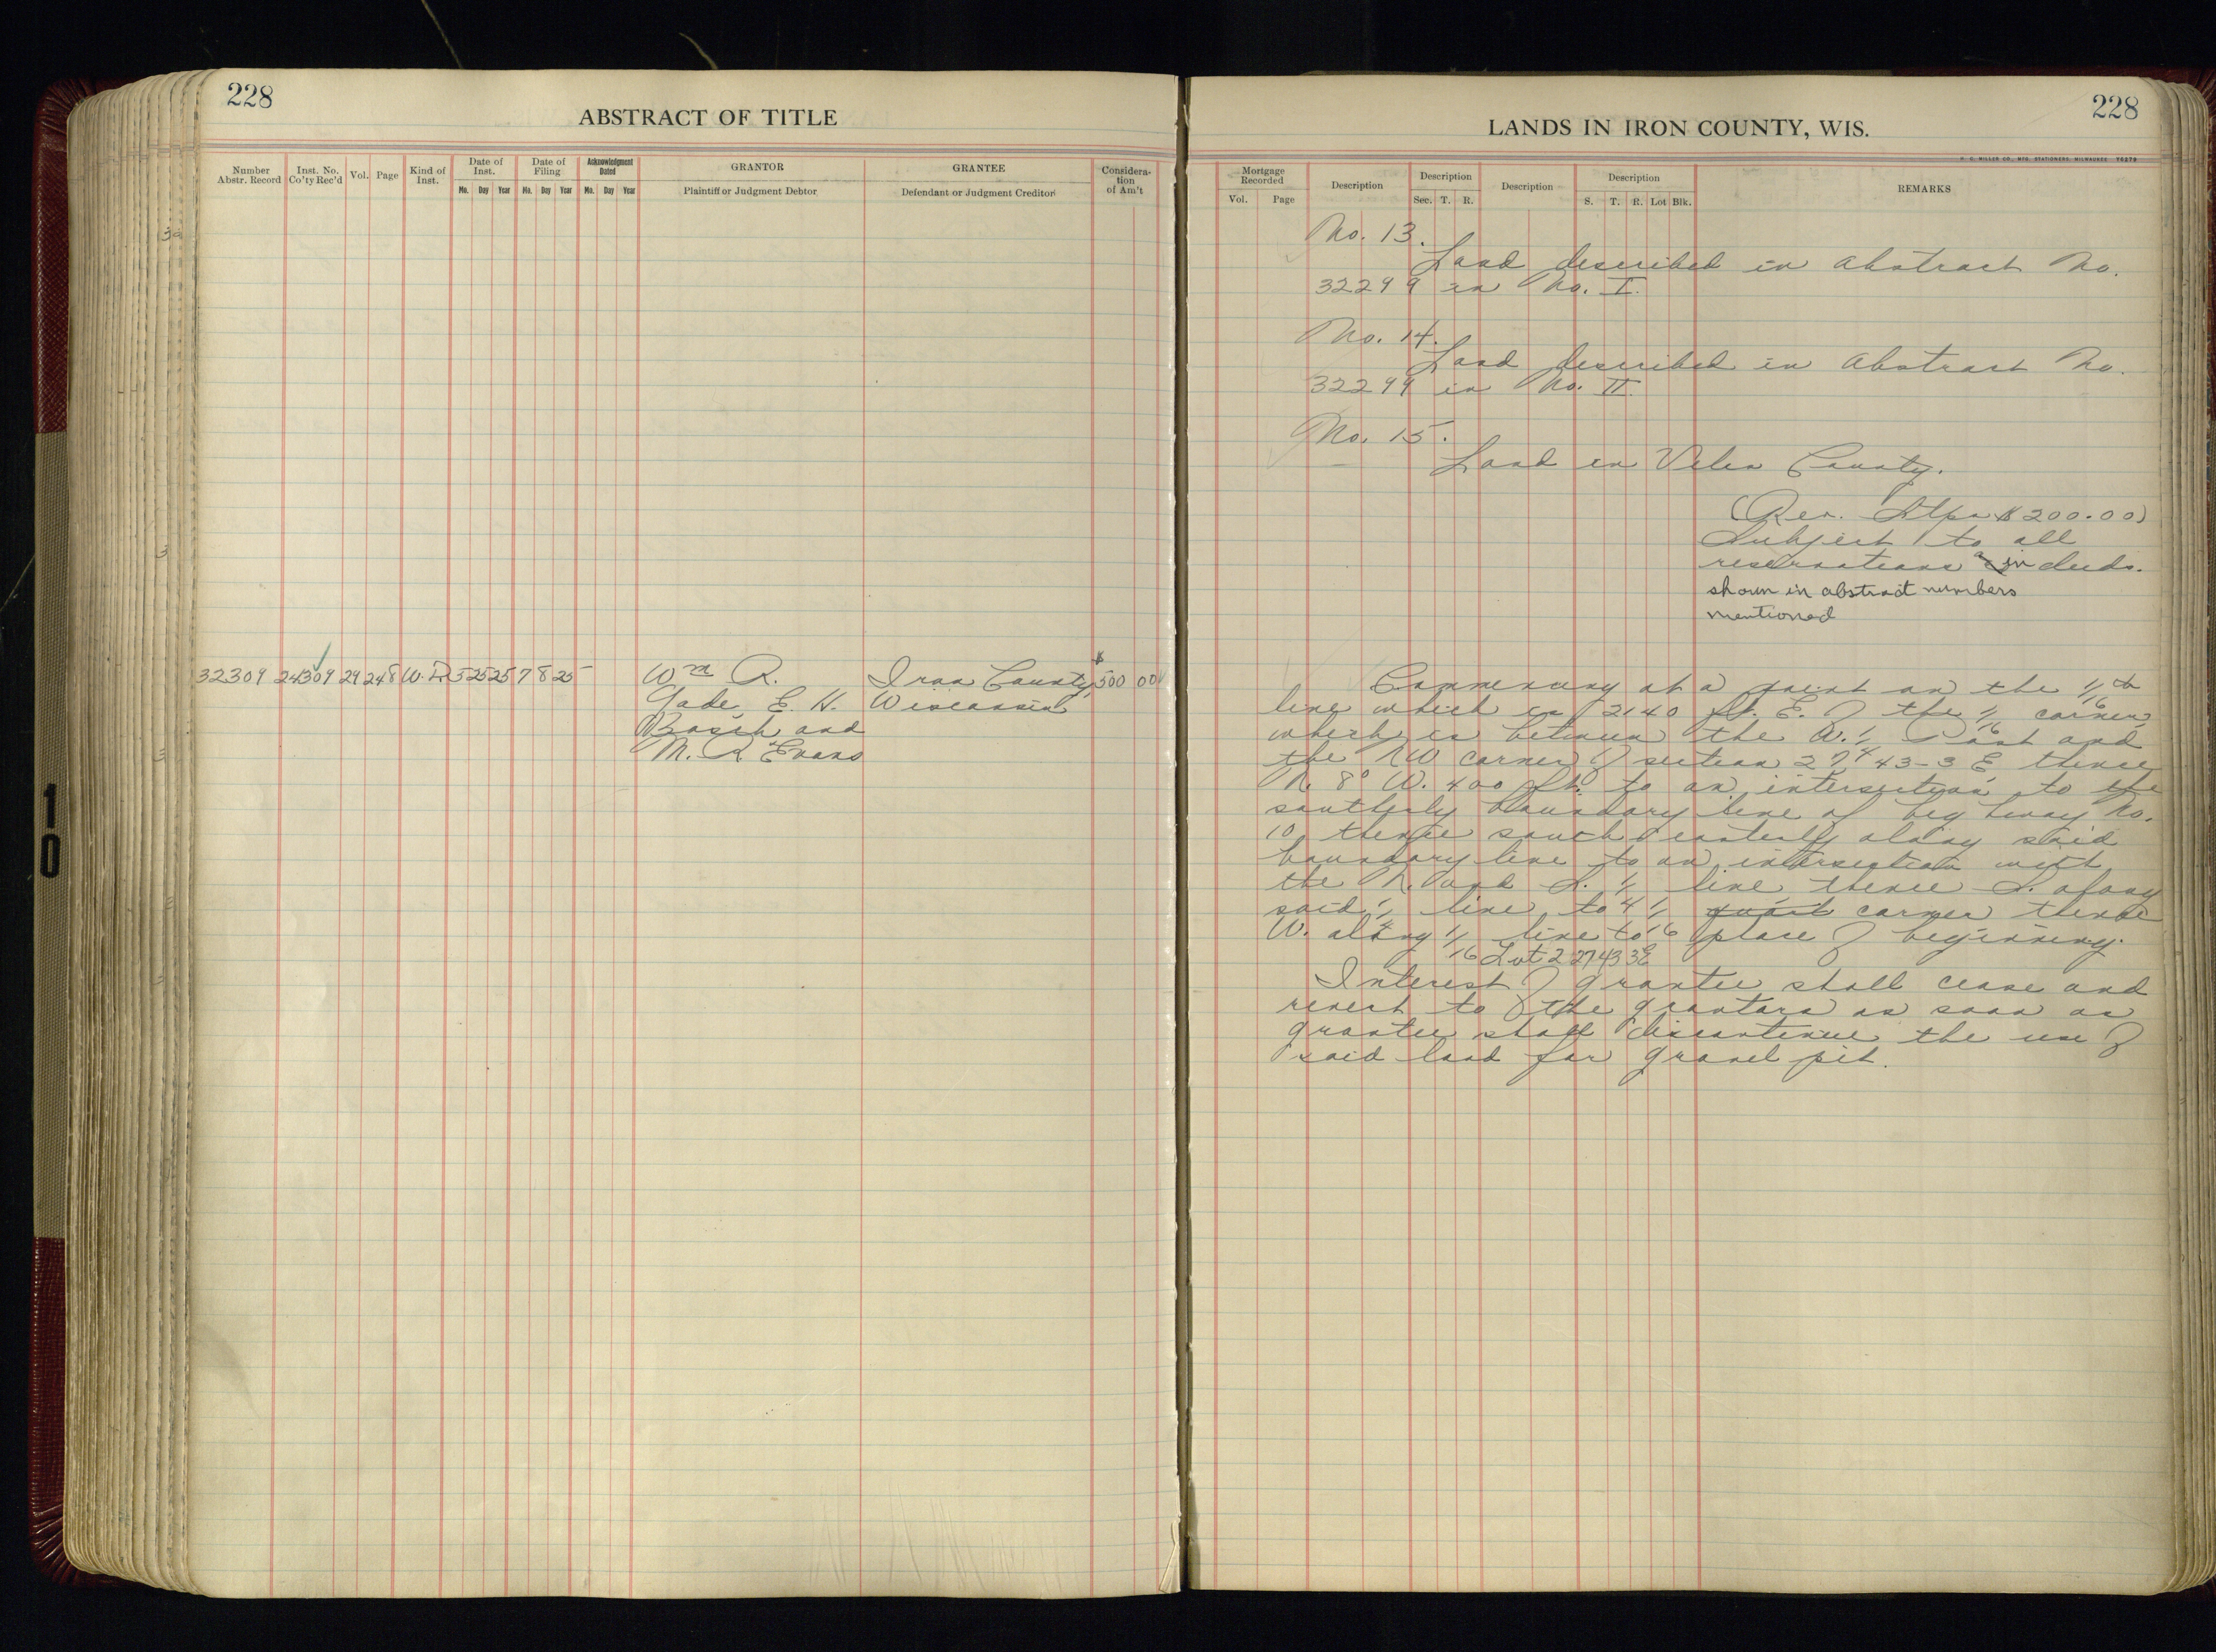 228
ABSTRACT OF TITLE
Number Abstr. Record
Inst. No. Co'ty Rec'd
Vol.
Page
Kind of Inst.
Date of Inst.
Mo. Day Year
Date of Filing
Mo. Day Year
Acknowledgment Dated
Mo. Day Year
GRANTOR
Plaintiff or Judgment Debtor
GRANTEE
Defendant or Judgment Creditor
Considera-
tion
of Am't
32309 24309 29 248 W.D. 5 25 25 7 8 25 Wm R. Iron County $500 00
Gade, E. H. Wisconsin
and
M. R. Evans
10
228
LANDS IN IRON COUNTY, WIS.
H. C. MILLER CO., MFG. STATIONERS, MILWAUKEE 70279
Mortgage Recorded
Vol. Page
Description
Description
Sec. T. R.
Description
Description
S. T. R. Lot Blk.
REMARKS
No. 13.
Land described in Abstract No.
32299 in No. I.
No. 14.
Land described in Abstract No.
32299 in No. II.
No. 15.
Land in Vilas County.
(Rev. Stps $200.00)
Subject to all
reservations in deeds.
shown in abstract numbers
mentioned
Commencing at a point on the 1/16th
line which is 2140 ft. E. of the 1/16 corner,
which is between the W. 1/4 Post and
the NW corner of section 27-43-3 E thence
N. 8° W. 400 ft. to an intersection to the
southerly boundary line of highway No.
10 thence south easterly along said
boundary line to an intersection with
the N. and S. 1/4 line, thence S. along
said 1/4 line to 1/16 corner thence
W. along 1/16 line to place of beginning.
Lot 2 27 43 3E
Interest of grantee shall cease and
revert to the grantors as soon as
grantee shall discontinue the use of
said land for gravel pit.